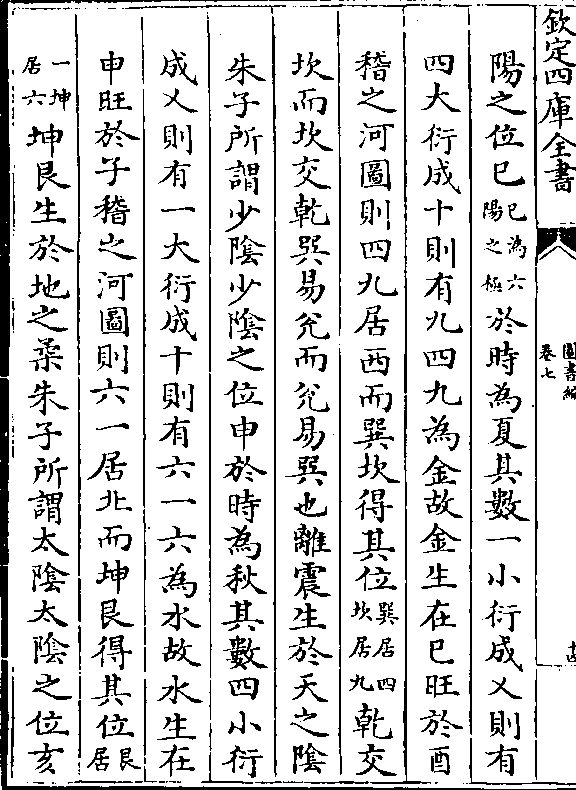 欽定四庫全書
圖書編
卷七
陽之位巳巳為六陽之極於時為夏其數一小衍成乂則有
四大衍成十則有九四九為金故金生在巳旺於酉
稽之河圖則四九居西而巽坎得其位巽居四坎居九乾交
坎而坎交乾巽易兊而兊易巽也離震生於天之陰
朱子所謂少陰少陰之位申於時為秋其數四小衍
成乂則有一大衍成十則有六一六為水故水生在
申旺於子稽之河圖則六一居北而坤艮得其位艮居
一坤居六坤艮生於地之柔朱子所謂太陰太陰之位亥